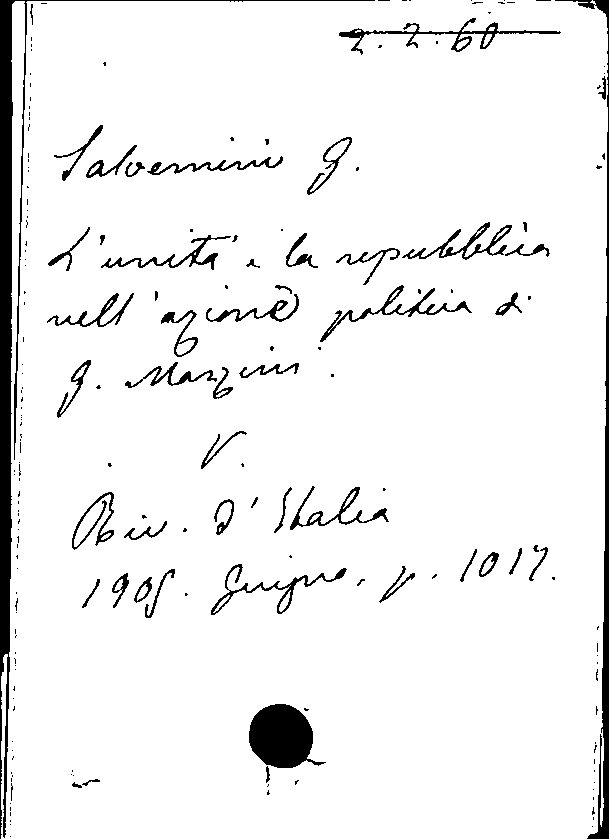 2.2.60
Salvemini G.
L'unità e la repubblica
nell'azione politica di
G. Mazzini.
V.
Riv. d'Italia
1905. Giugno, p. 1017.